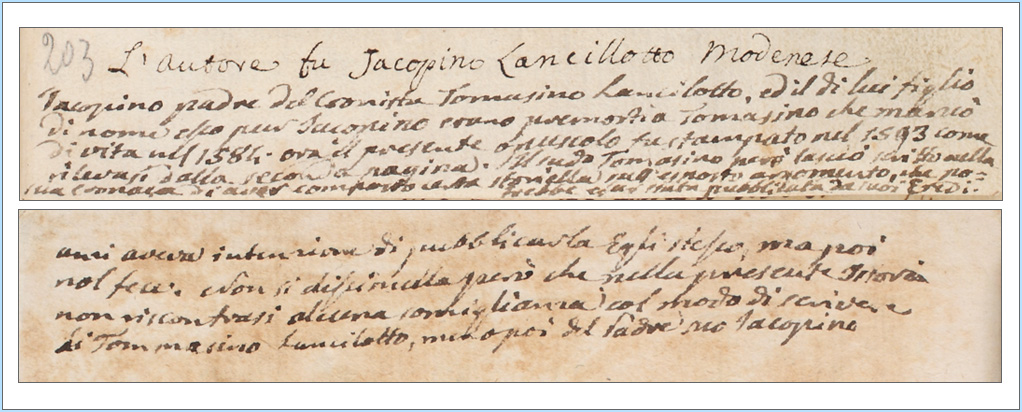 203
L'autore fu Jacopino Lancillotto Modenese
Jacopino padre del Cronista Tomasino Lancilotto, ed il di lui figlio
di nome esso pur Jacopino erano premorti a Tomasino che mancò
di vita nel ora il presente opuscolo fu stampato nel 1593 come
rilevasi dalla seconda pagina. Il sudo Tomasino però lasciò scritto nella
sua Cronaca di aver composto storiella sull'esposto argomento, che po=
trebbe esser stata pubblicata da suoi Eredi.
anzi aveva intenzione di pubblicarla Egli stesso, ma poi
nol fece. Non si dissimulla però che nella presente Istoria
non riscontrasi alcuna somiglianza col modo di scrivere
di Tommasino Lancilotto, meno poi del Padre suo Jacopino